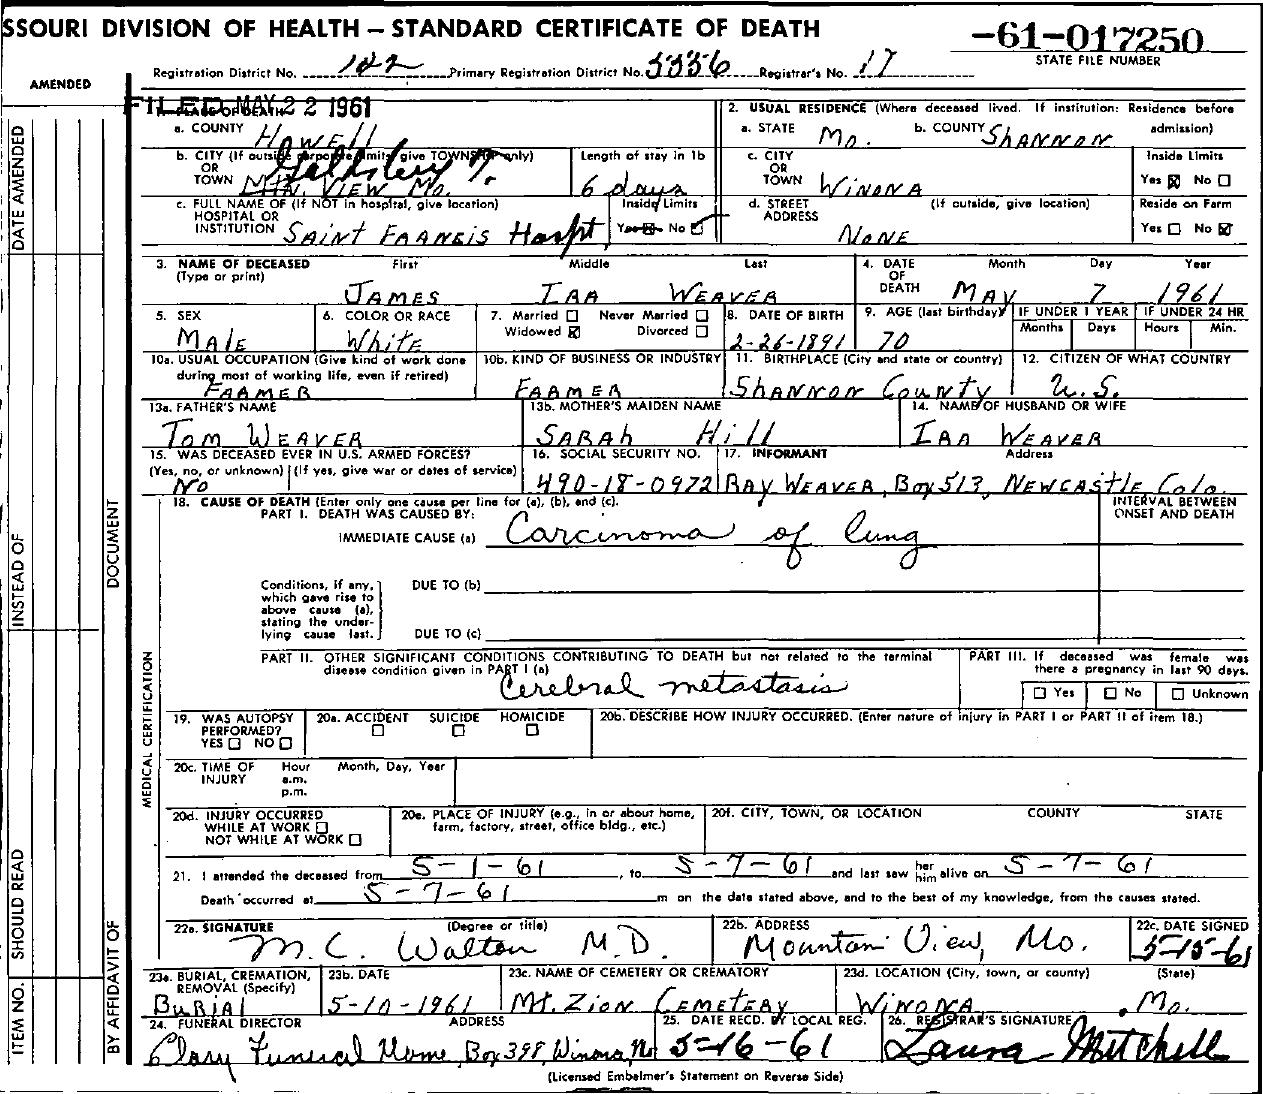 SSOURI DIVISION OF HEALTH — STANDARD CERTIFICATE OF DEATH
-61-017250
STATE FILE NUMBER
Registration District No. 122 Primary Registration District No. 5556 Registrar's No. 17
AMENDED
FILED MAY 22 1961
1. PLACE OF DEATH
a. COUNTY HOWELL
b. CITY (If outside corporate limits, give TOWNSHIP only) OR TOWN MTN. VIEW MO.
Goldsberry T.
Length of stay in 1b
6 days
c. FULL NAME OF (If NOT in hospital, give location) HOSPITAL OR INSTITUTION SAINT FRANCIS Hospt,
Inside Limits
Yes ☒ No ☑
2. USUAL RESIDENCE (Where deceased lived. If institution: Residence before admission)
a. STATE Mo. b. COUNTY SHANNON
c. CITY OR TOWN WINONA
Inside Limits
Yes ☒ No ☐
d. STREET ADDRESS (If outside, give location)
NONE
Reside on Farm
Yes ☐ No ☒
3. NAME OF DECEASED (Type or print)
First Middle Last
JAMES IRA WEAVER
4. DATE OF DEATH
Month Day Year
MAY 7 1961
5. SEX
MALE
6. COLOR OR RACE
White
7. Married ☐ Never Married ☐
Widowed ☒ Divorced ☐
8. DATE OF BIRTH
2-26-1891
9. AGE (last birthday)
70
IF UNDER 1 YEAR
Months Days
IF UNDER 24 HR
Hours Min.
10a. USUAL OCCUPATION (Give kind of work done during most of working life, even if retired)
FARMER
10b. KIND OF BUSINESS OR INDUSTRY
FARMER
11. BIRTHPLACE (City and state or country)
SHANNON COUNTY
12. CITIZEN OF WHAT COUNTRY
U.S.
13a. FATHER'S NAME
TOM WEAVER
13b. MOTHER'S MAIDEN NAME
SARAH Hill
14. NAME OF HUSBAND OR WIFE
IRA WEAVER
15. WAS DECEASED EVER IN U.S. ARMED FORCES?
(Yes, no, or unknown) (If yes, give war or dates of service)
No
16. SOCIAL SECURITY NO.
490-18-0972
17. INFORMANT Address
RAY WEAVER, Box 513, NEWCASTLE Colo.
18. CAUSE OF DEATH (Enter only one cause per line for (a), (b), and (c).
PART I. DEATH WAS CAUSED BY:
IMMEDIATE CAUSE (a) Carcinoma of lung
INTERVAL BETWEEN ONSET AND DEATH
Conditions, if any, which gave rise to above cause (a), stating the underlying cause last.
DUE TO (b)
DUE TO (c)
PART II. OTHER SIGNIFICANT CONDITIONS CONTRIBUTING TO DEATH but not related to the terminal disease condition given in PART I (a)
Cerebral metastasis
PART III. If deceased was female was there a pregnancy in last 90 days.
☐ Yes ☐ No ☐ Unknown
19. WAS AUTOPSY PERFORMED?
YES ☐ NO ☐
20a. ACCIDENT SUICIDE HOMICIDE
☐ ☐ ☐
20b. DESCRIBE HOW INJURY OCCURRED. (Enter nature of injury in PART I or PART II of item 18.)
20c. TIME OF INJURY Hour a.m. p.m. Month, Day, Year
20d. INJURY OCCURRED
WHILE AT WORK ☐
NOT WHILE AT WORK ☐
20e. PLACE OF INJURY (e.g., in or about home, farm, factory, street, office bldg., etc.)
20f. CITY, TOWN, OR LOCATION COUNTY STATE
21. I attended the deceased from 5-1-61, to 5-7-61 and last saw her him alive on 5-7-61
Death occurred at 5-7-61 m on the date stated above, and to the best of my knowledge, from the causes stated.
22a. SIGNATURE (Degree or title)
M.C. Walton M.D.
22b. ADDRESS
Mountain View, Mo.
22c. DATE SIGNED
5-15-61
23a. BURIAL, CREMATION, REMOVAL (Specify)
BURIAL
23b. DATE
5-10-1961
23c. NAME OF CEMETERY OR CREMATORY
Mt. ZION CEMETERY
23d. LOCATION (City, town, or county) (State)
WINONA Mo.
24. FUNERAL DIRECTOR ADDRESS
Clary Funeral Home, Box 398, Winona, Mo
25. DATE RECD. BY LOCAL REG.
5-16-61
26. REGISTRAR'S SIGNATURE
Laura Mitchell
(Licensed Embalmer's Statement on Reverse Side)
DATE AMENDED
INSTEAD OF
SHOULD READ
ITEM NO.
DOCUMENT
BY AFFIDAVIT OF
MEDICAL CERTIFICATION